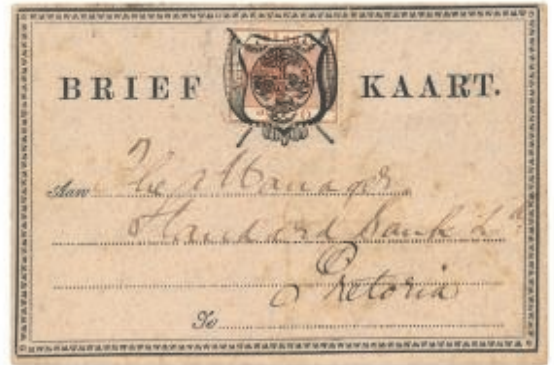 BRIEF KAART.
Aan The Manager
Standard Bank Ld
Pretoria
Te